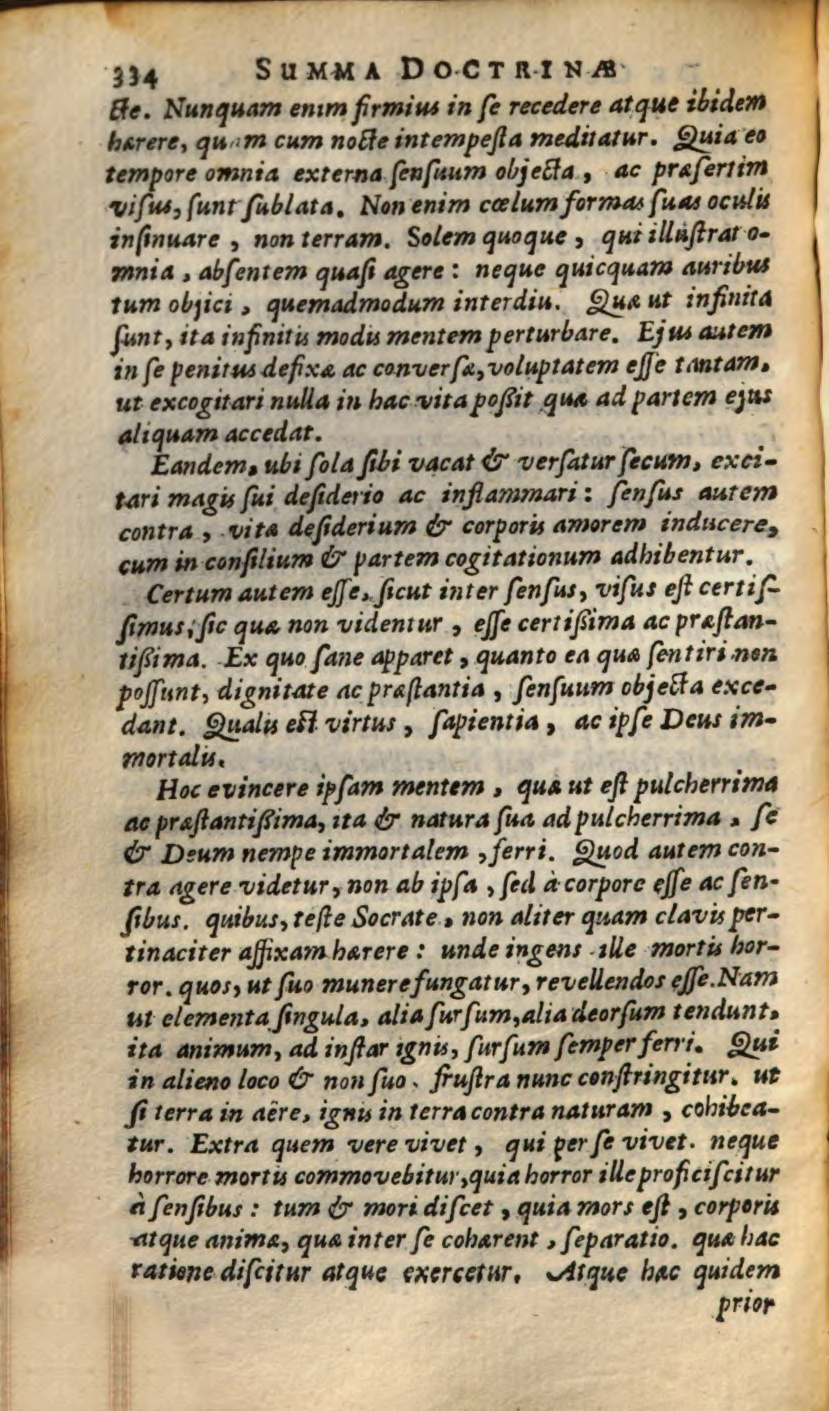 334 SUMMA DOCTRINÆ
cte. Nunquam enim firmius in se recedere atque ibidem
hærere, quam cum nocte intempesta meditatur. Quia eo
tempore omnia externa sensuum objecta, ac præsertim
visus, sunt sublata. Non enim cœlum formas suas oculis
insinuare, non terram. Solem quoque, qui illustrat o-
mnia, absentem quasi agere: neque quicquam auribus
tum objici, quemadmodum interdiu. Quæ ut infinita
sunt, ita infinitis modis mentem perturbare. Ejus autem
in se penitus defixæ ac conversæ, voluptatem esse tantam,
ut excogitari nulla in hac vita poßit quæ ad partem ejus
aliquam accedat.
Eandem, ubi sola sibi vacat & versatur secum, exci-
tari magis sui desiderio ac inflammari: sensus autem
contra, vitæ desiderium & corporis amorem inducere,
cum in consilium & partem cogitationum adhibentur.
Certum autem esse, sicut inter sensus, visus est certis-
simus, sic quæ non videntur, esse certißima ac præstan-
tißima. Ex quo sane apparet, quanto ea quæ sentiri non
possunt, dignitate ac præstantia, sensuum objecta exce-
dant. Qualis est virtus, sapientia, ac ipse Deus im-
mortalis.
Hoc evincere ipsam mentem, quæ ut est pulcherrima
ac præstantißima, ita & natura sua ad pulcherrima, se
& Deum nempe immortalem, ferri. Quod autem con-
tra agere videtur, non ab ipsa, sed à corpore esse ac sen-
sibus. quibus, teste Socrate, non aliter quam clavis per-
tinaciter affixam hærere: unde ingens ille mortis hor-
ror. quos, ut suo munere fungatur, revellendos esse. Nam
ut elementa singula, alia sursum, alia deorsum tendunt,
ita animum, ad instar ignis, sursum semper ferri. Qui
in alieno loco & non suo, frustra nunc constringitur. ut
si terra in aëre, ignis in terra contra naturam, cohibea-
tur. Extra quem vere vivet, qui per se vivet. neque
horrore mortis commovebitur, quia horror ille proficiscitur
à sensibus: tum & mori discet, quia mors est, corporis
atque animæ, quæ inter se cohærent, separatio. quæ hac
ratione discitur atque exercetur. Atque hæc quidem
prior